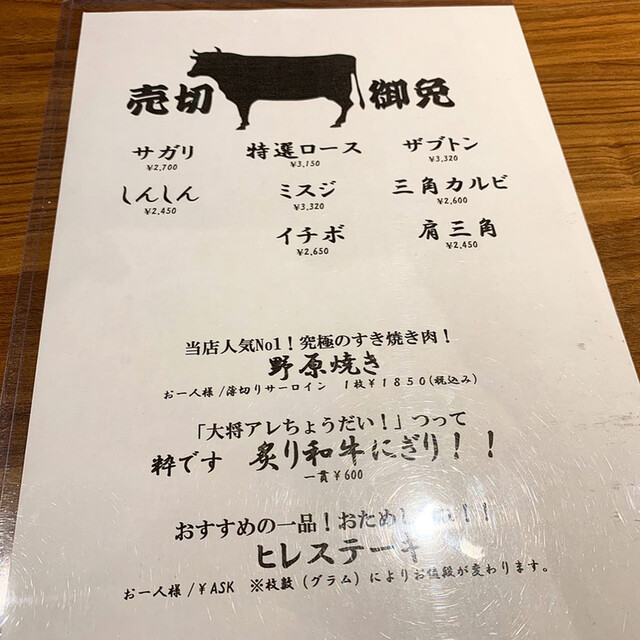 売切 御免
サガリ 特選ロース ザブトン
¥2,700 ¥3,150 ¥3,320
しんしん ミスジ 三角カルビ
¥2,450 ¥3,320 ¥2,600
イチボ 肩三角
¥2,650 ¥2,450
当店人気No1！究極のすき焼き肉！
野原焼き
お一人様/薄切りサーロイン 1枚¥1850(税込み)
「大将アレちょうだい！」つって
粋です 炙り和牛にぎり！！
一貫¥600
おすすめの一品！おためし！！
ヒレステーキ
お一人様/¥ASK ※枚数（グラム）によりお値段が変わります。